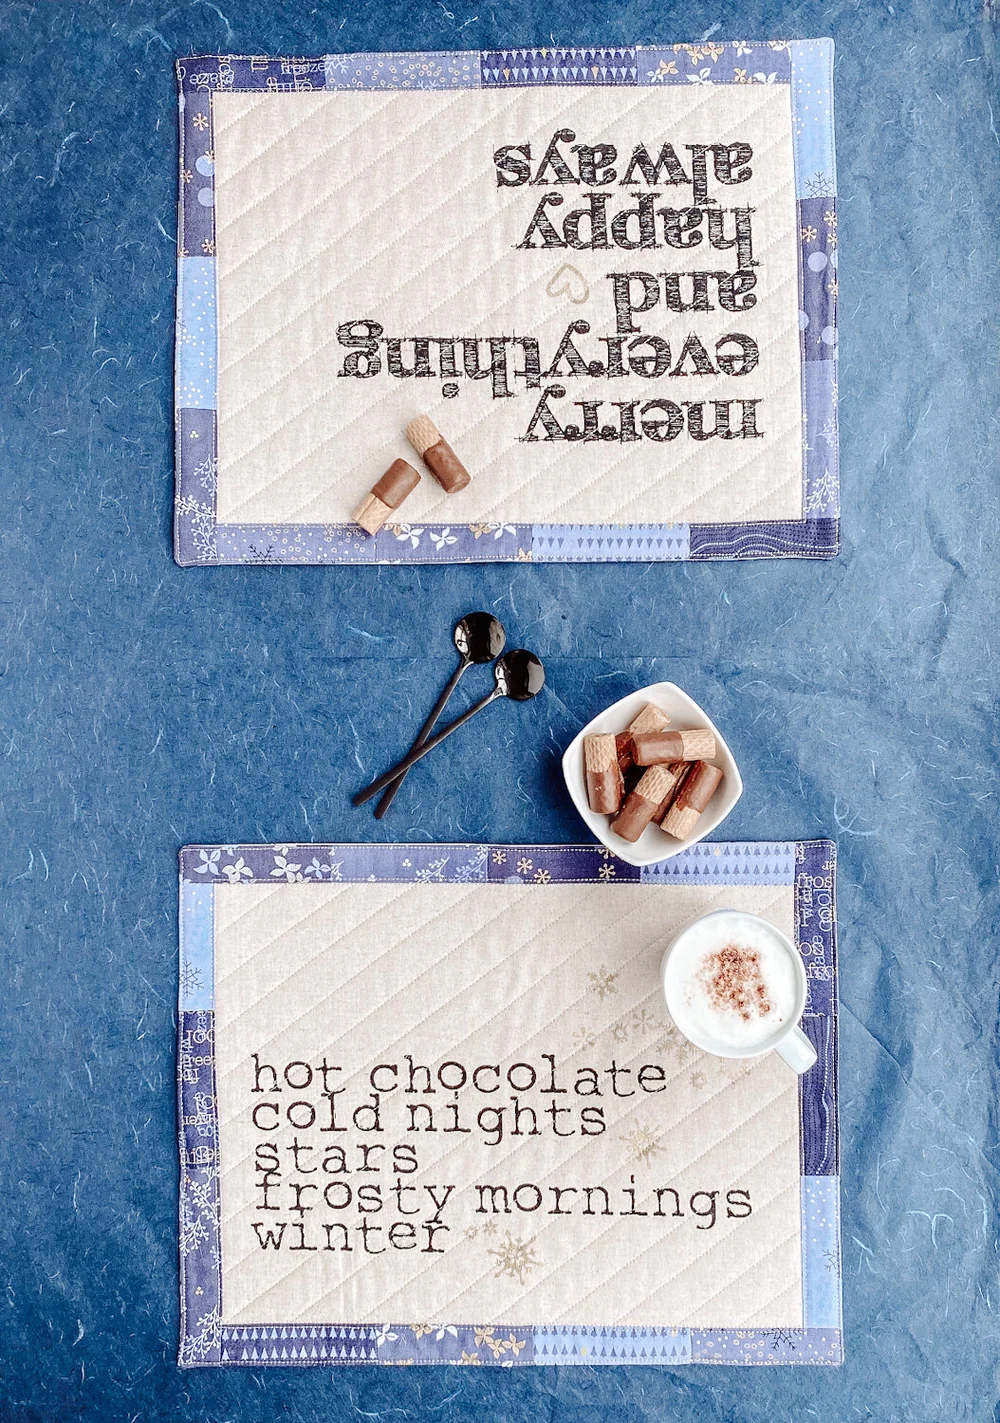 merry
everything
and
happy
always
hot chocolate
cold nights
stars
frosty mornings
winter